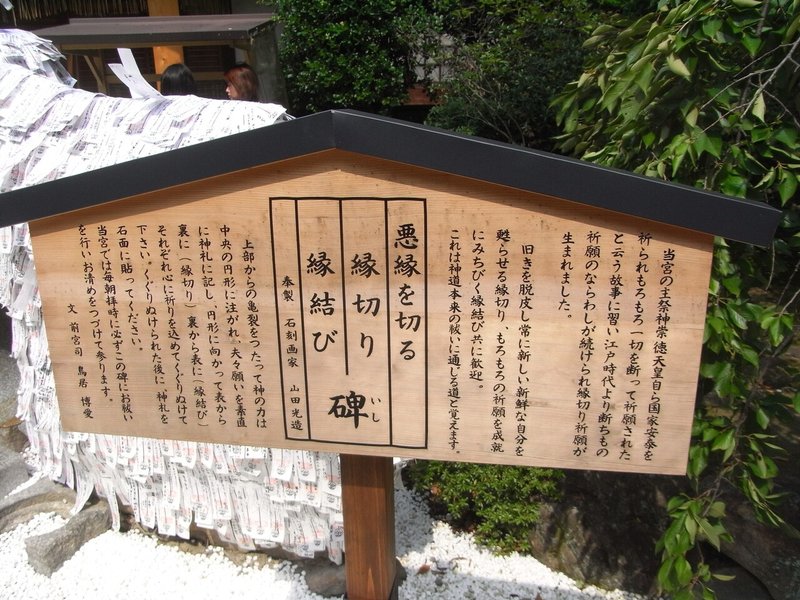 当宮の主祭神崇徳天皇自ら国家安泰を
祈られもろもろ一切を断って祈願された
と云う故事に習い江戸時代より断ちもの
祈願のならわしが続けられ縁切り祈願が
生まれました。
旧きを脱皮し常に新しい新鮮な自分を
甦らせる縁切り、もろもろの祈願を成就
にみちびく縁結び共に歓迎。
これは神道本来の祓いに通じる道と覚えます。
悪縁を切る
縁切り
縁結び
碑
いし
奉製 石刻画家 山田光造
上部からの亀裂をつたって神の力は
中央の円形に注がれ、夫々願いを素直
に神札に記し、円形に向かって表から
裏に(縁切り)裏から表に(縁結び)
それぞれ心に祈りを込めてくぐりぬけて
下さい。くぐりぬけられた後に 神札を
石面に貼ってください。
当宮では毎朝拝時に必ずこの碑にお祓い
を行いお清めをつづけて参ります。
文 前宮司 鳥居 博愛